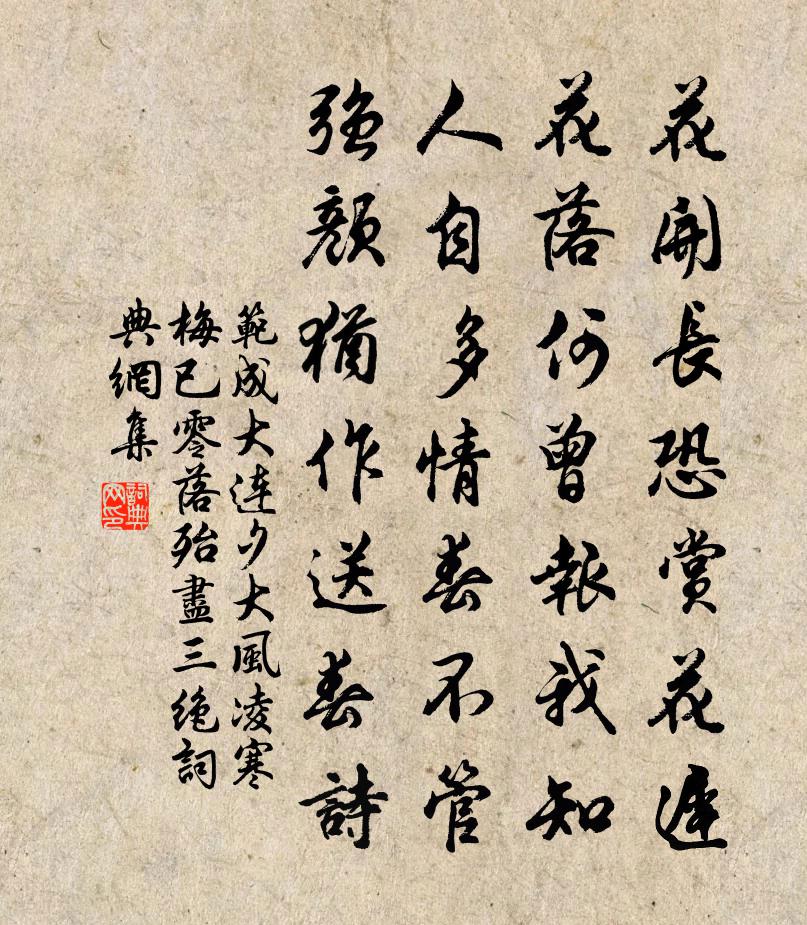 花開長恐賞花遲
花落何曾報我知
人自多情春不管
強顏猶作送春詩
範成大連夕大風凌寒
梅已零落殆盡三絶詞
典網集
詞典網印